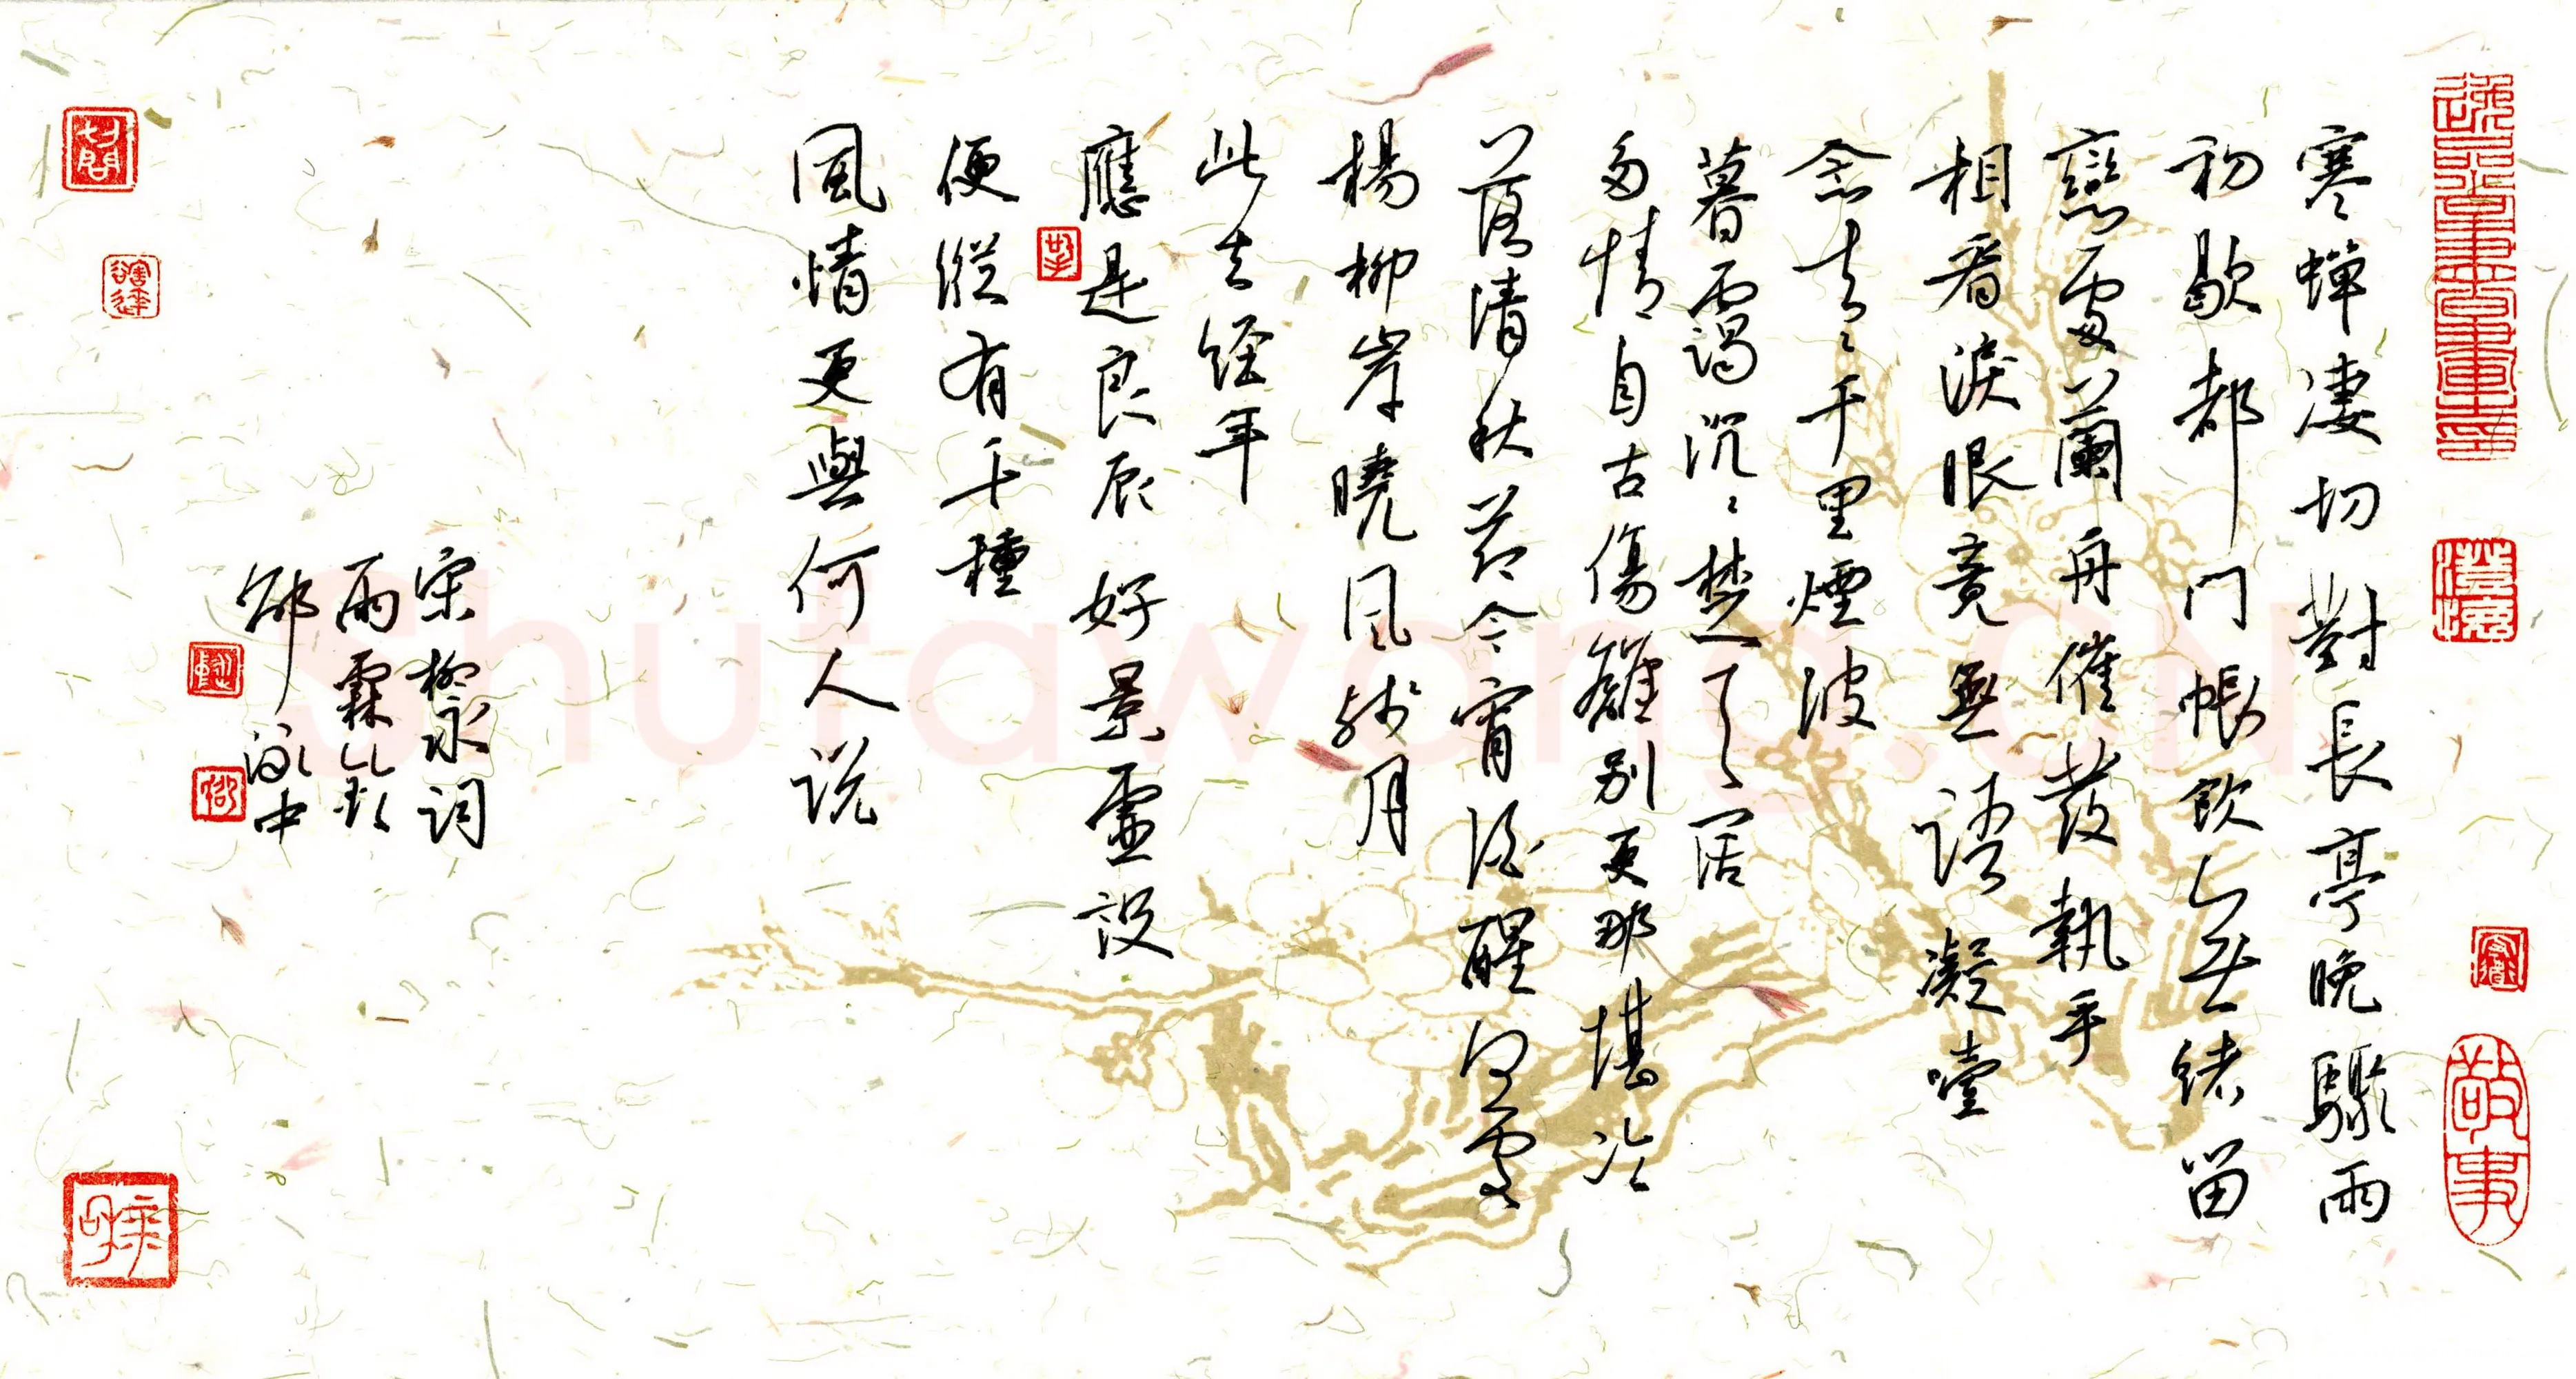 寒蟬凄切對長亭晚驟雨
初歇都门帳飲無緒留
戀處蘭舟催發執手
相看淚眼竟無語凝噎
念去々千里煙波
暮靄沉々楚天闊
多情自古傷離別更那堪冷
落清秋節今宵酒醒何處
楊柳岸曉風殘月
此去经年
應是良辰好景虛設
便縱有千種
風情更與何人説
宋柳永詞
雨霖鈴
邱泳中
敬事
Shutawang.CN